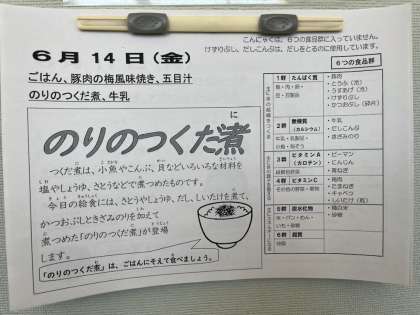 こんにゃくは、6つの食品群に入っていません。
けずりぶし、だしこんぶは、だしをとるのに使用しています。
6月14日(金)
ごはん、豚肉の梅風味焼き、五目汁
のりのつくだ煮、牛乳
に
のりのつくだ煮
つくだ煮は、小魚やこんぶ、貝などいろいろな材料を
塩やしょうゆ、さとうなどで煮つめたものです。
今日の給食には、さとうやしょうゆ、だし、しいたけを煮て、
かつおぶしときざみのりを加えて
煮つめた「のりのつくだ煮」が登場
します。
「のりのつくだ煮」は、ごはんにそえて食べましょう。
6つの食品群
1群 たんぱく質
・豚肉
・とうふ(汁)
・うすあげ(汁)
・けずりぶし
・かつおぶし(砕片)
2群 無機質
(カルシウム)
・牛乳
・だしこんぶ
・きざみのり
3群 ビタミンA
(カロテン)
・ピーマン
・にんじん
・青ねぎ
4群 ビタミンC
その他の野菜・果物
・梅肉
・たまねぎ
・キャベツ
・しいたけ(乾)
5群 炭水化物
・精白米
・砂糖
6群 脂質